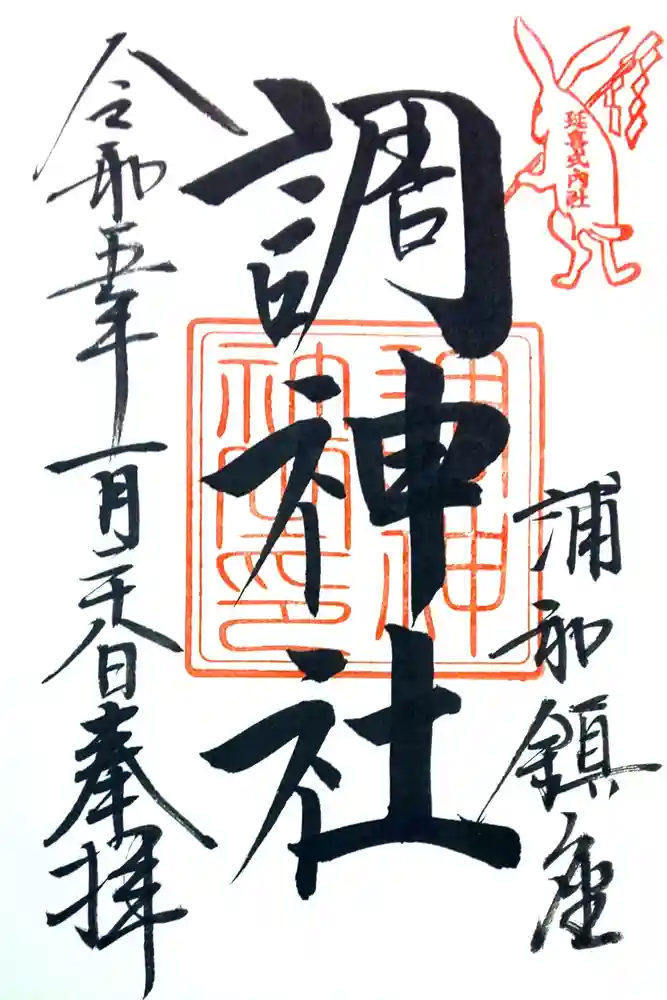 延喜式内社
浦和鎮座
調神社
令和五年一月二十八日奉拝